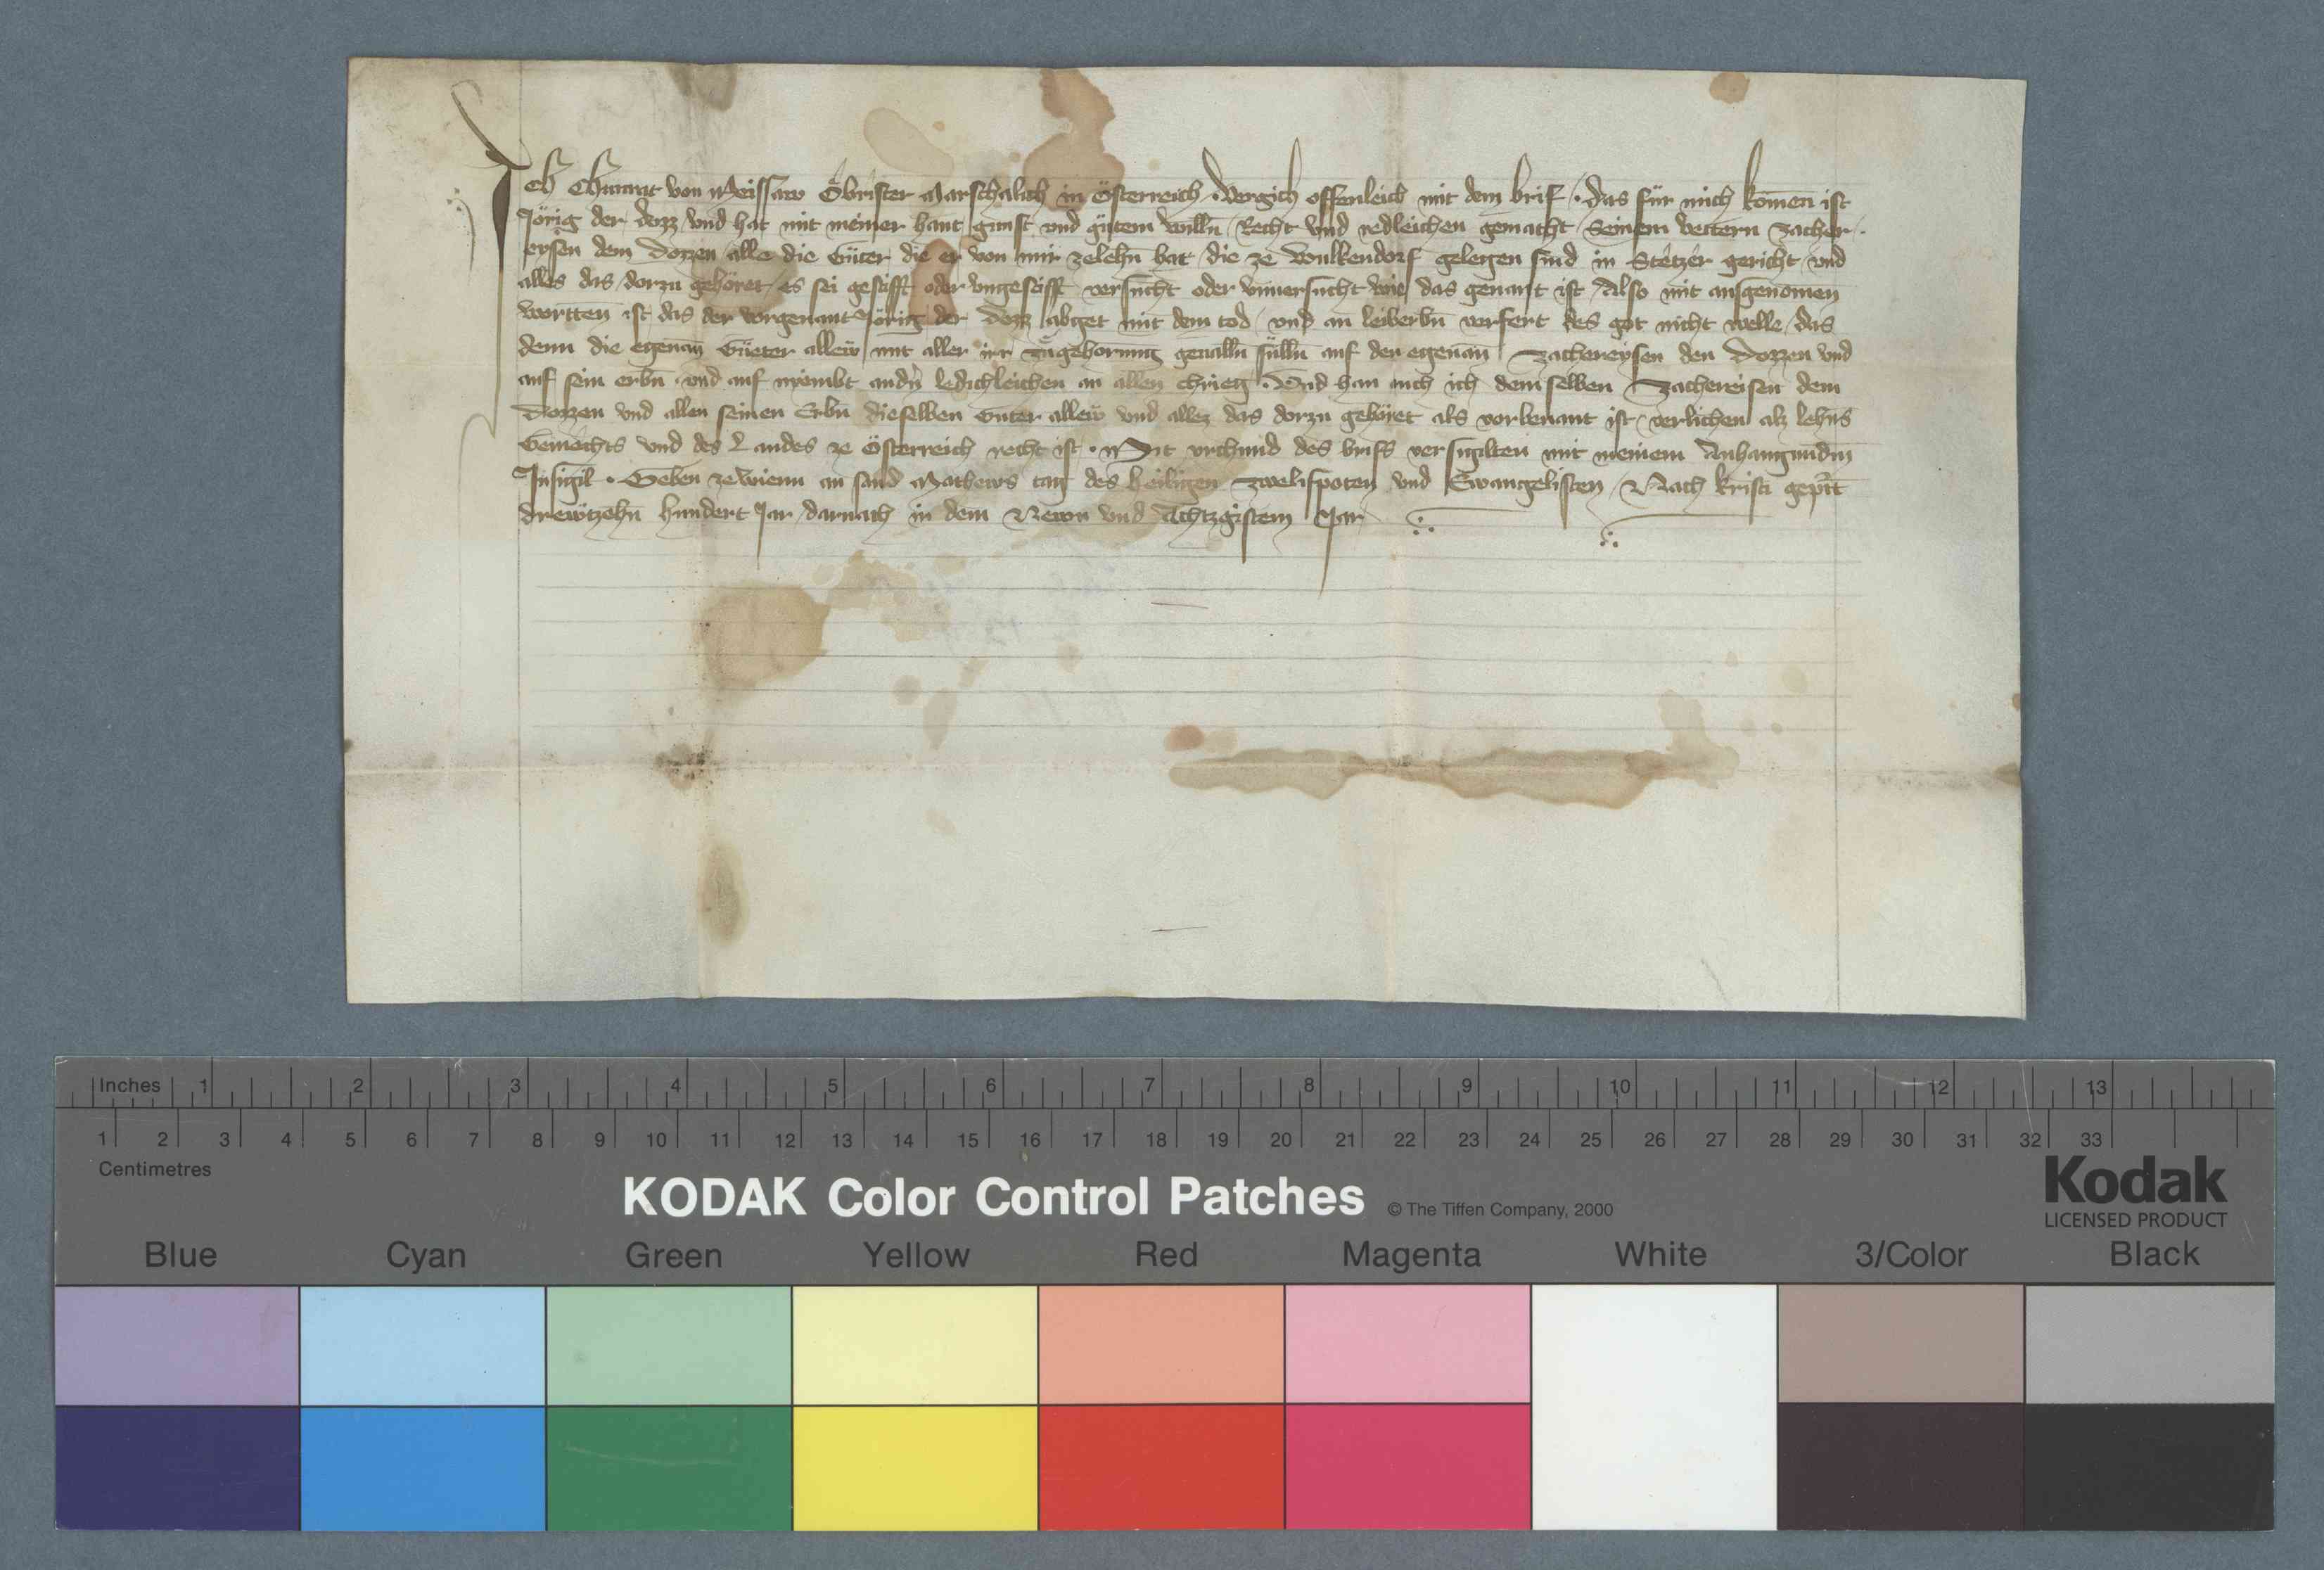 Ich Chunrat von Meissaw Obrister Marschalich in Österreich · Vergich offenleich mit dem brif · das für mich komen ist
Jörig der dozz vnd hat mit meiner hant gunst vnd gütem willn Recht vnd redleichen gemacht Seinem vettern Zacher
eysen dem Dozzen alle die Güter die er von mir zelehn hat die ze Wulkendorf gelegen sind in Stetzer gericht vnd
alles das dorzu gehöret es sei gestifft oder vngestifft versücht oder vnuersücht wie das genant ist Also mit ausgenomen
wortten ist das der vorgenant Jörig der Dozz abget mit dem tod vnd an leiberbn verfert des got nicht welle das
denn die egenan Güeter allew mit aller irr zügehorung geualln sülln auf den egenan Zachereysen den Dozzen vnd
auf sein erbn vnd auf nyembt andn ledichleichen an allen chrieg · Vnd han auch ich dem selben Zachereisen dem
Dozzen vnd allen seinen Erbn dieselben Güter allew vnd allez das dorzu gehöret als vorbenant ist verlichen alz lehns
Gemechts vnd des Landes ze Österreich recht ist · Mit vrchund des brifs versigilten mit meinem Anhangundm
Insigil · Geben zewienn an sand Matheus tag des heiligen Zwelifpoten vnd Ewangelisten Nach kristi gepürt
drewtzehn hundert Jar darnach in dem Newn vnd Achtzgistem Jar
Inches 1 2 3 4 5 6 7 8 9 10 11 12 13
1 2 3 4 5 6 7 8 9 10 11 12 13 14 15 16 17 18 19 20 21 22 23 24 25 26 27 28 29 30 31 32 33
Centimetres
KODAK Color Control Patches © The Tiffen Company, 2000
Kodak
LICENSED PRODUCT
Blue Cyan Green Yellow Red Magenta White 3/Color Black